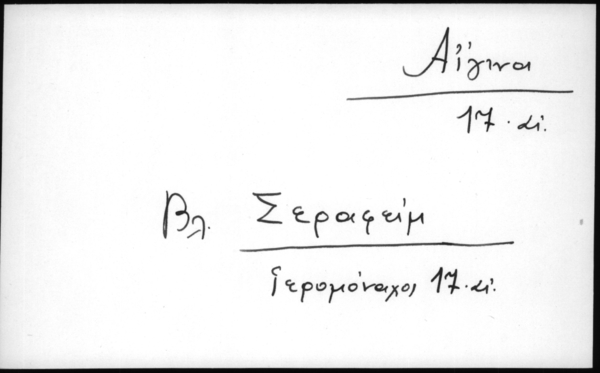 Αἴγινα
17. αἰ.
Βλ. Σεραφείμ
ἱερομόναχος 17. αἰ.